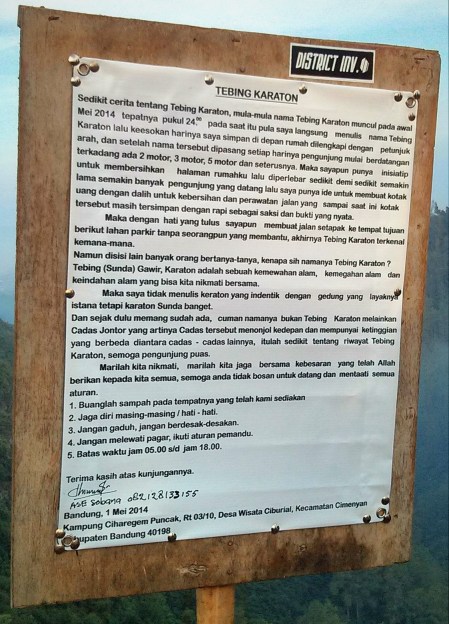 DISTRICT INV.
TEBING KARATON
Sedikit cerita tentang Tebing Karaton, mula-mula nama Tebing Karaton muncul pada awal
Mei 2014 tepatnya pukul 24.00 pada saat itu pula saya langsung menulis nama Tebing
Karaton lalu keesokan harinya saya simpan di depan rumah dilengkapi dengan petunjuk
arah, dan setelah nama tersebut dipasang setiap harinya pengunjung mulai berdatangan
terkadang ada 2 motor, 3 motor, 5 motor dan seterusnya. Maka sayapun punya inisiatip
untuk membersihkan halaman rumahku lalu diperlebar sedikit demi sedikit semakin
lama semakin banyak pengunjung yang datang lalu saya punya ide untuk membuat kotak
uang dengan dalih untuk kebersihan dan perawatan jalan yang sampai saat ini kotak
tersebut masih tersimpan dengan rapi sebagai saksi dan bukti yang nyata.
Maka dengan hati yang tulus sayapun membuat jalan setapak ke tempat tujuan
berikut lahan parkir tanpa seorangpun yang membantu, akhirnya Tebing Karaton terkenal
kemana-mana.
Namun disisi lain banyak orang bertanya-tanya, kenapa sih namanya Tebing Karaton ?
Tebing (Sunda) Gawir, Karaton adalah sebuah kemewahan alam, kemegahan alam dan
keindahan alam yang bisa kita nikmati bersama.
Maka saya tidak menulis keraton yang indentik dengan gedung yang layaknya
istana tetapi karaton Sunda banget.
Dan sejak dulu memang sudah ada, cuman namanya bukan Tebing Karaton melainkan
Cadas Jontor yang artinya Cadas tersebut menonjol kedepan dan mempunyai ketinggian
yang berbeda diantara cadas - cadas lainnya, itulah sedikit tentang riwayat Tebing
Karaton, semoga pengunjung puas.
Marilah kita nikmati, marilah kita jaga bersama kebesaran yang telah Allah
berikan kepada kita semua, semoga anda tidak bosan untuk datang dan mentaati semua
aturan.
1. Buanglah sampah pada tempatnya yang telah kami sediakan
2. Jaga diri masing-masing / hati - hati.
3. Jangan gaduh, jangan berdesak-desakan.
4. Jangan melewati pagar, ikuti aturan pemandu.
5. Batas waktu jam 05.00 s/d jam 18.00.
Terima kasih atas kunjungannya.
ASE Sobana 082128133155
Bandung, 1 Mei 2014
Kampung Ciharegem Puncak, Rt 03/10, Desa Wisata Ciburial, Kecamatan Cimenyan
Kabupaten Bandung 40198